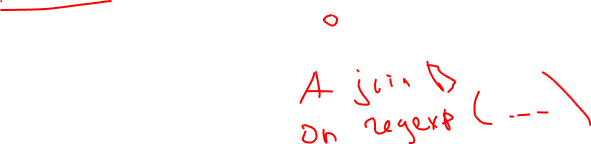 A join B
on regexp (---)